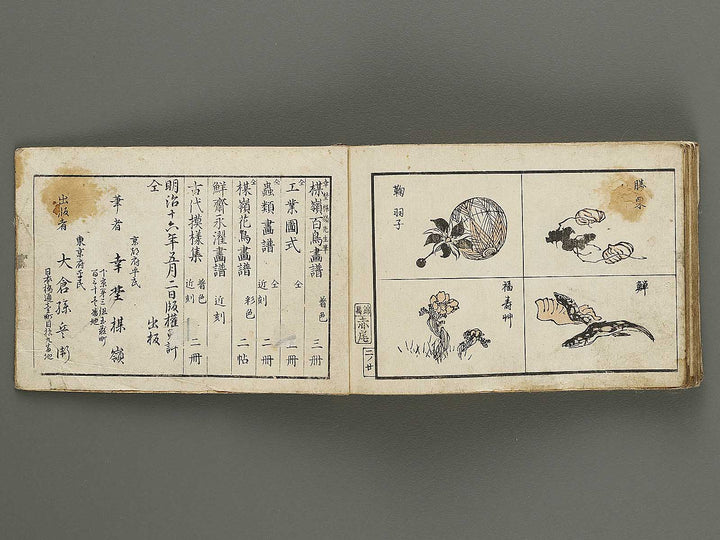 勝栗
鞠
羽子
福寿艸
赤尾
二ノ廿
幸埜楳嶺先生筆
楳嶺百鳥畫譜 着色 三冊
仝
工業圖式 仝 一冊
仝
蟲類畫譜 仝 近刻 二冊
仝
楳嶺花鳥畫譜 彩色 二帖
鮮齋永濯畫譜 近刻 二冊
古代模樣集 着色 近刻 二冊
明治十六年五月二日版權免許
仝 出板
京都府平民
筆者 幸埜楳嶺
東京府平民
出版者 大倉孫兵衛
日本橋通壱町目拾九番地